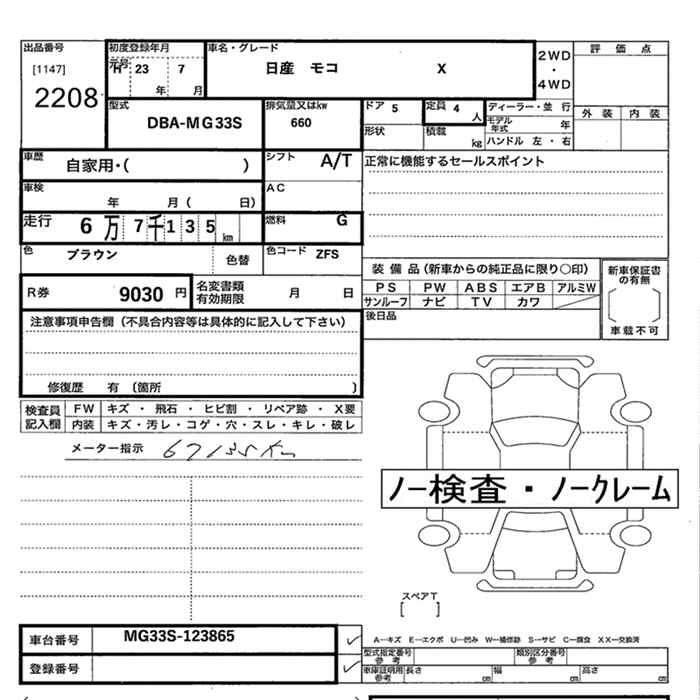 出品番号
[1147]
2208
初度登録年月
元号 H 23 7
年 月
車名・グレード
日産 モコ X
2WD
・
4WD
評 価 点
外 装 内 装
型式
DBA-MG33S
排気量又はkw
660
ドア 5
定員 4 人
形状
積載 kg
ディーラー・並 行
モデル年式 年
ハンドル 左・右
車歴
自家用・( )
シフト A/T
正常に機能するセールスポイント
車検
年 月( 日)
AC
走行 6万7千135km
燃料 G
色
ブラウン
色替
色コード ZFS
装 備 品(新車からの純正品に限り○印)
PS PW ABS エアB アルミW
サンルーフ ナビ TV カワ
新車保証書の有無
車載不可
R券 9030 円
名変書類有効期限 月 日
後日品
注意事項申告欄(不具合内容等は具体的に記入して下さい)
修復歴 有 (箇所 )
検査員記入欄
FW キズ ・ 飛石 ・ ヒビ割 ・ リペア跡 ・ X要
内装 キズ・汚レ・コゲ・穴・スレ・キレ・破レ
メーター指示 67135Km
ノー検査・ノークレーム
スペアT
[ ]
車台番号 MG33S-123865
A…キズ E…エクボ U…凹み W…補修跡 S…サビ C…腐食 XX…交換済
登録番号
型式指定番号参考
類別区分番号参考
車庫証明用参考 長さ cm 幅 cm 高さ cm